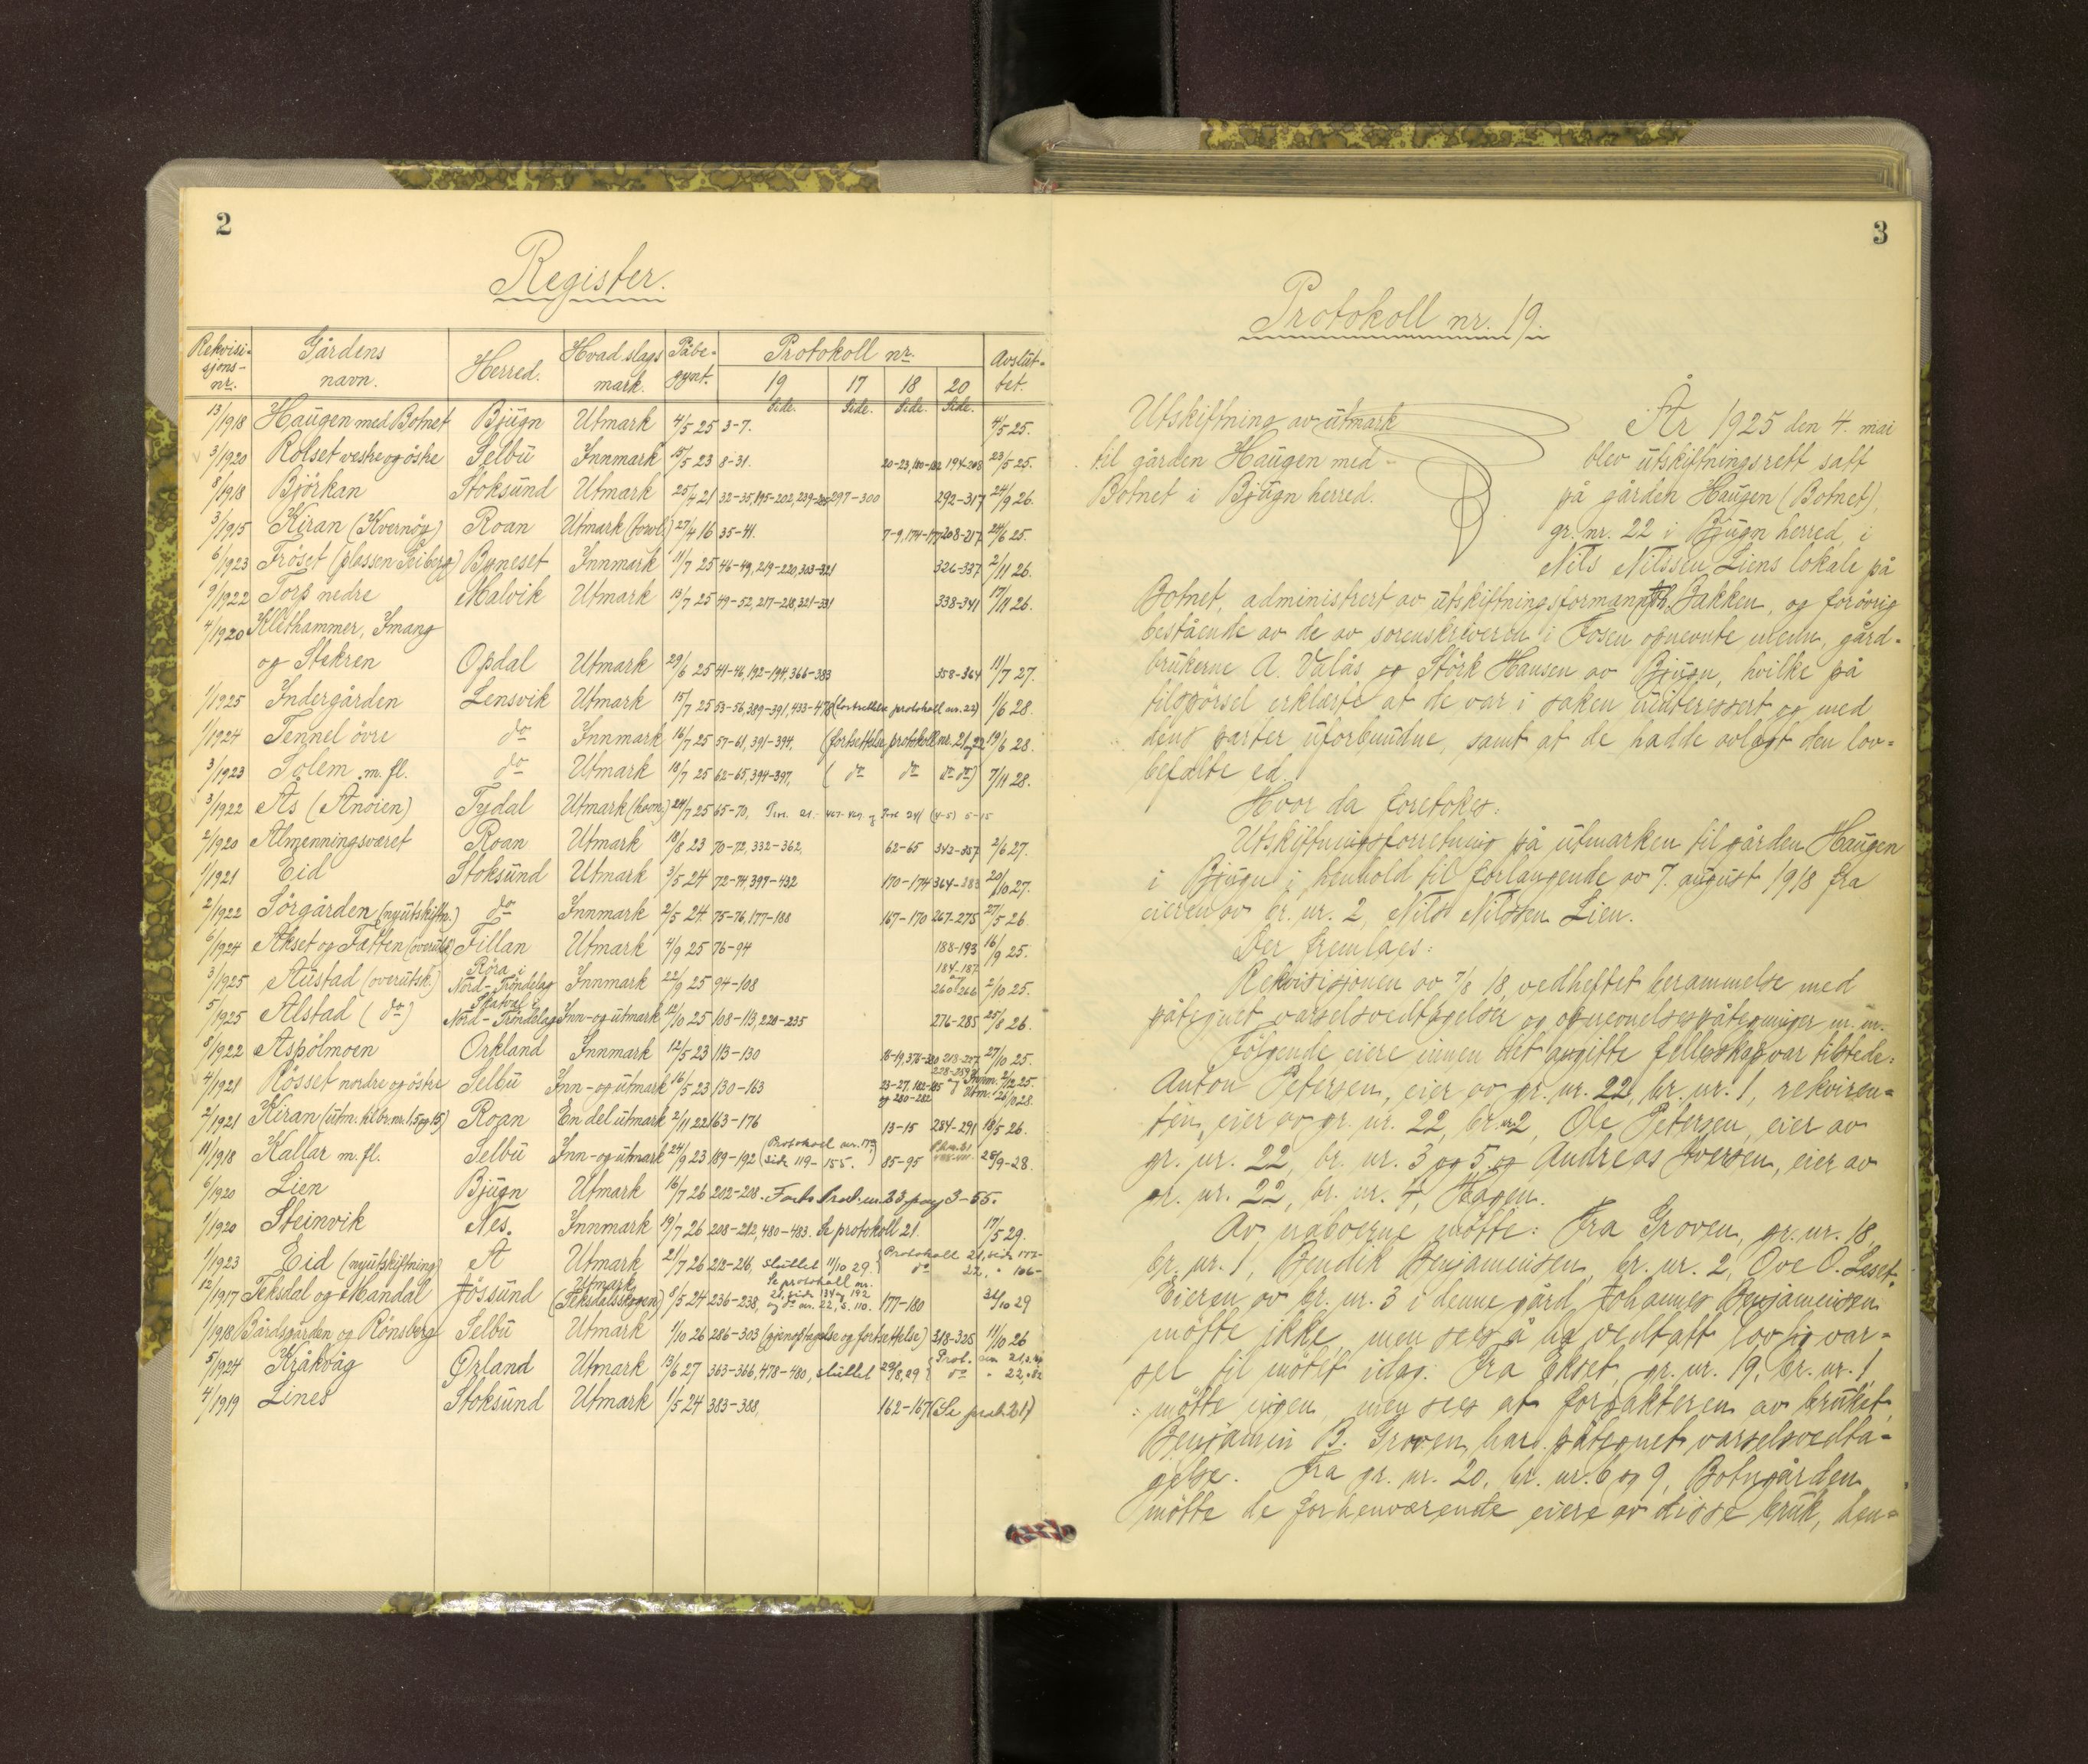 2
Register.
Rekvisisjons-nr. Gårdens navn. Herred. Hvad slags mark. Påbegynt. Protokoll nr. Avsluttet.
19 17 18 20
Side. Side. Side. Side.
13/1918 Haugen med Botnet Bjugn Utmark 4/5 25 3-7. 4/5 25.
3/1920 Rolset vestre og östre Selbu Innmark 15/5 23 8-31. 20-23, 194-208 23/5 25.
8/1918 Björkan Stoksund Utmark 25/4 21 32-35, 195-202, 239- 297-300 292-317 24/9 26.
3/1915 Kiran (Kvernöy) Roan Utmark 27/4 16 35-41. 7-9, 174-177 208-217 24/6 25.
6/1923 Fröset (plassen ) Byneset Innmark 11/7 25 46-49, 219-220, 303-321 326-337 2/11 26.
9/1922 Torp nedre Malvik Utmark 13/7 25 49-52, 217-218, 321-331 338-341 17/11 26.
4/1920 Klethammer, Imang
og Stekren Opdal Utmark 29/6 25 41-46, 192-194, 366-383 358-364 11/7 27.
1/1925 Indergården Lensvik Utmark 15/7 25 53-56, 389-391, 433-478 (fortsettelse protokoll nr. 22) 1/6 28.
1/1924 Tennel övre do Innmark 16/7 25 57-61, 391-394, (fortsettelse protokoll nr. 21 og 22) 19/6 28.
3/1923 Solem m. fl. do Utmark 18/7 25 62-65, 394-397, (do do do do) 7/11 28.
3/1922 Ås (Ånöien) Tydal Utmark (havn.) 24/7 25 65-70,
2/1920 Almenningsværet Roan Utmark 18/8 23 70-72, 332-362, 62-65 343-357 2/6 27.
1/1921 Eid Stoksund Utmark 3/5 24 72-74, 397-432 170-174 364-383 20/10 27.
2/1922 Sörgården (nyutskiftn.) do Innmark 2/5 24 75-76, 177-188 167-170 267-275 27/5 26
6/1924 Akset og Fætten (overutsk.) Fillan Utmark 4/9 25 76-94 188-193 16/9 25.
3/1925 Austad (overutsk.) Röra i Nord-Tröndelag Innmark 22/9 25 94-108 184-187 og 260-266 2/10 25.
5/1925 Alstad (do) Skatval i Nord-Tröndelag Inn-og utmark 12/10 25 108-113, 220-235 276-285 25/8 26.
8/1922 Aspölmoen Orkland Innmark 12/5 23 113-130 18-19, 27/10 25.
4/1921 Rösset nordre og östre Selbu Inn-og utmark 16/5 23 130-163 23-27, og 280-282
2/1921 Kiran (utm. til br.nr. 1,5 og 15) Roan En del utmark 2/11 22 163-176 13-15 284-291 18/5 26.
11/1918 Kallar m. fl. Selbu Inn-og utmark 24/9 23 189-192 (Protokoll nr. 17 side 119-155.) 85-95 28/9-28.
6/1920 Lien Bjugn Utmark 16/7 26 202-208. Forts. Prot. nr. 23 pag 3-55.
1/1920 Steinvik Nes. Innmark 19/7 26 208-212, 480-483. Se protokoll 21. 17/5 29.
1/1923 Eid (nyutskiftning) Å Utmark 21/7 26 212-216, sluttet 11/10 29. Protokoll 21, side 172- do 22, " 106-
12/1917 Teksdal og Mandal Jössund Utmark (Teksdalsskogen) 8/5 24 236-238, Se protokoll nr. 21, side 134 og 192 og do nr. 22, s. 110. 177-180 24/10 29
1/1918 Bårdsgården og Rönsberg Selbu Utmark 1/10 26 286-303 (gjenoptagelse og fortsettelse) 318-325 11/10 26
5/1924 Kråkvåg Ørland Utmark 13/6 27 363-366, 478-480, sluttet 29/8 29 Prot. do
4/1919 Lines Stoksund Utmark 1/5 24 383-388, 162-167 (Se prot. 21)
3
Protokoll nr. 19.
Utskiftning av utmark
til gården Haugen med
Botnet i Bjugn herred.
År 1925 den 4. mai
blev utskiftningsrett satt
på gården Haugen (Botnet),
gr. nr. 22 i Bjugn herred, i
Nils Nilssen Liens lokale på
Botnet, administrert av utskiftningsformann Bakken, og forövrig
bestående av de av sorenskriveren i Fosen opnevnte menn, gård-
brukerne A. Valås og Störk Hansen av Bjugn, hvilke på
tilspörsel erklærte at de var i saken uinteressert og med
dens parter uforbundne, samt at de hadde avlagt den lov-
befalte ed.
Hvor da foretokes:
Utskiftningsforretning på utmarken til gården Haugen
i Bjugn i henhold til forlangende av 7. august 1918 fra
eieren av br. nr. 2, Nils Nilssen Lien.
Der fremlaes:
Rekvisisjonen av 7/8 18, vedheftet berammelse med
påtegnet varselsvedtagelse og opnevnelsespåtegninger m. m.
Fölgende eiere innen det angitte fellesskap var tilstede:
Anton Petersen, eier av gr. nr. 22, br. nr. 1, rekviren-
ten, eier av gr. nr. 22, br. nr. 2, Ole Petersen, eier av
gr. nr. 22, br. nr. 3 og 5 og Andreas Iversen, eier av
gr. nr. 22, br. nr. 4, Hagen.
Av naboerne mötte: Fra Groven, gr. nr. 18,
br. nr. 1, Bendik Benjaminsen, br. nr. 2, Ove O. Leset.
Eieren av br. nr. 3 i denne gård, Johannes Benjaminsen
mötte ikke, men sees å ha vedtatt lovlig var-
sel til mötet idag. Fra Ekset, gr. nr. 19, br. nr. 1,
mötte ingen, men sees at forpakteren av bruket,
Benjamin B. Groven, har påtegnet varselsvedta-
gelse. Fra gr. nr. 20, br. nr. 6 og 9, Botngården
mötte de forhenværende eiere av disse bruk, hen-